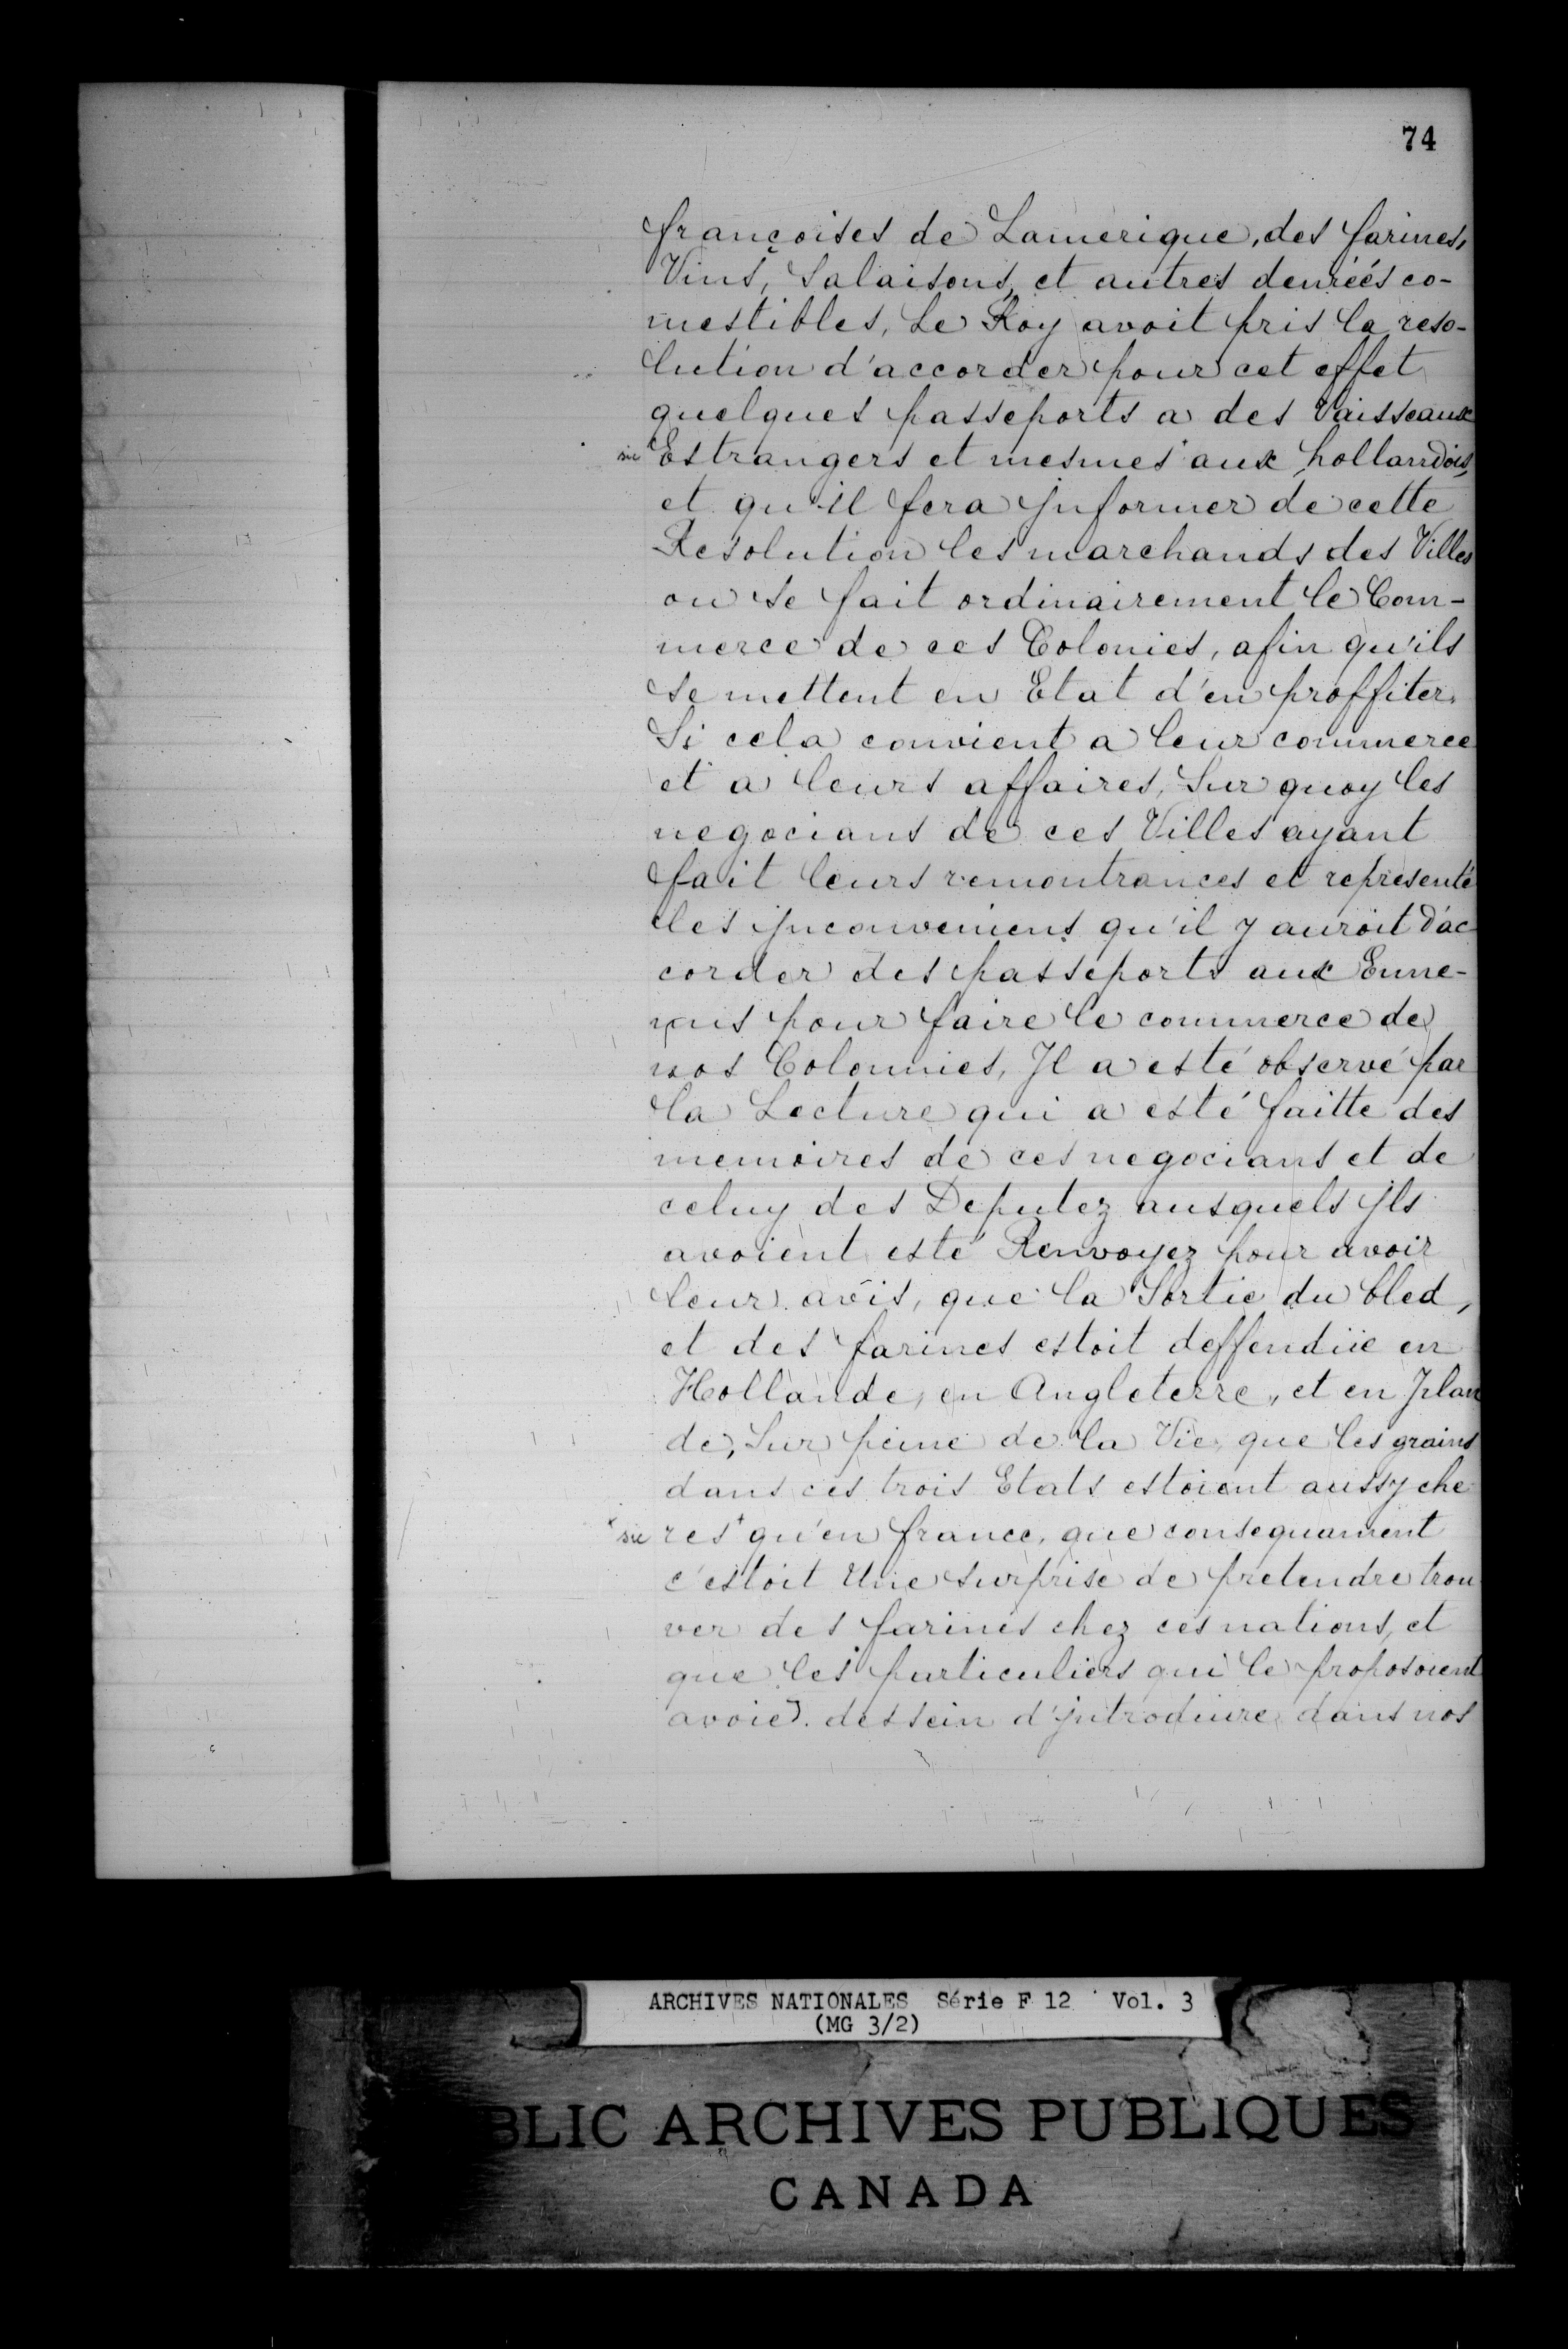 74
françoises de Lamerique, des farines,
Vins, Salaisons, et autres denréés co-
mestibles, Le Roy avoit pris la reso-
lution d'accorder pour cet effet
quelques passeports a des Vaisseaux
sic Estrangers et mesmes aux hollandois,
et qu'il fera jnformer de cette
Resolution les marchands des Villes
ou se fait ordinairement le Com-
merce de ces Colonies, afin qu'ils
se mettent en Etat d'en proffiter.
Si cela convient a leur commerce
et a leurs affaires, Sur quoy les
negocians de ces Villes ayant
fait leurs remontrances et representé
les jnconveniens qu'il y auroit d'ac
corder des passeports aux Enne-
mis pour faire le commerce de
nos Colonnies, Jl a esté observé par
la Lecture qui a esté faitte des
memoires de ces negocians et de
celuy des Deputez ausquels jls
avoient esté Renvoyez pour avoir
leur avis, que la Sortie du bled,
et des farines estoit deffendüe en
Hollande, en Angleterre, et en Jrlan
de, Sur peine de la Vie, que les grains
dans ces trois Etats estoient aussy che
+ sic res+ qu'en france, que consequament
c'estoit Une surprise de pretendre trou
ver des farines chez ces nations, et
que les particuliers qui le proposoient
avoiet. dessein d'jntroduire dans nos
ARCHIVES NATIONALES Série F 12 Vol. 3
(MG 3/2)
BLIC ARCHIVES PUBLIQUES
CANADA